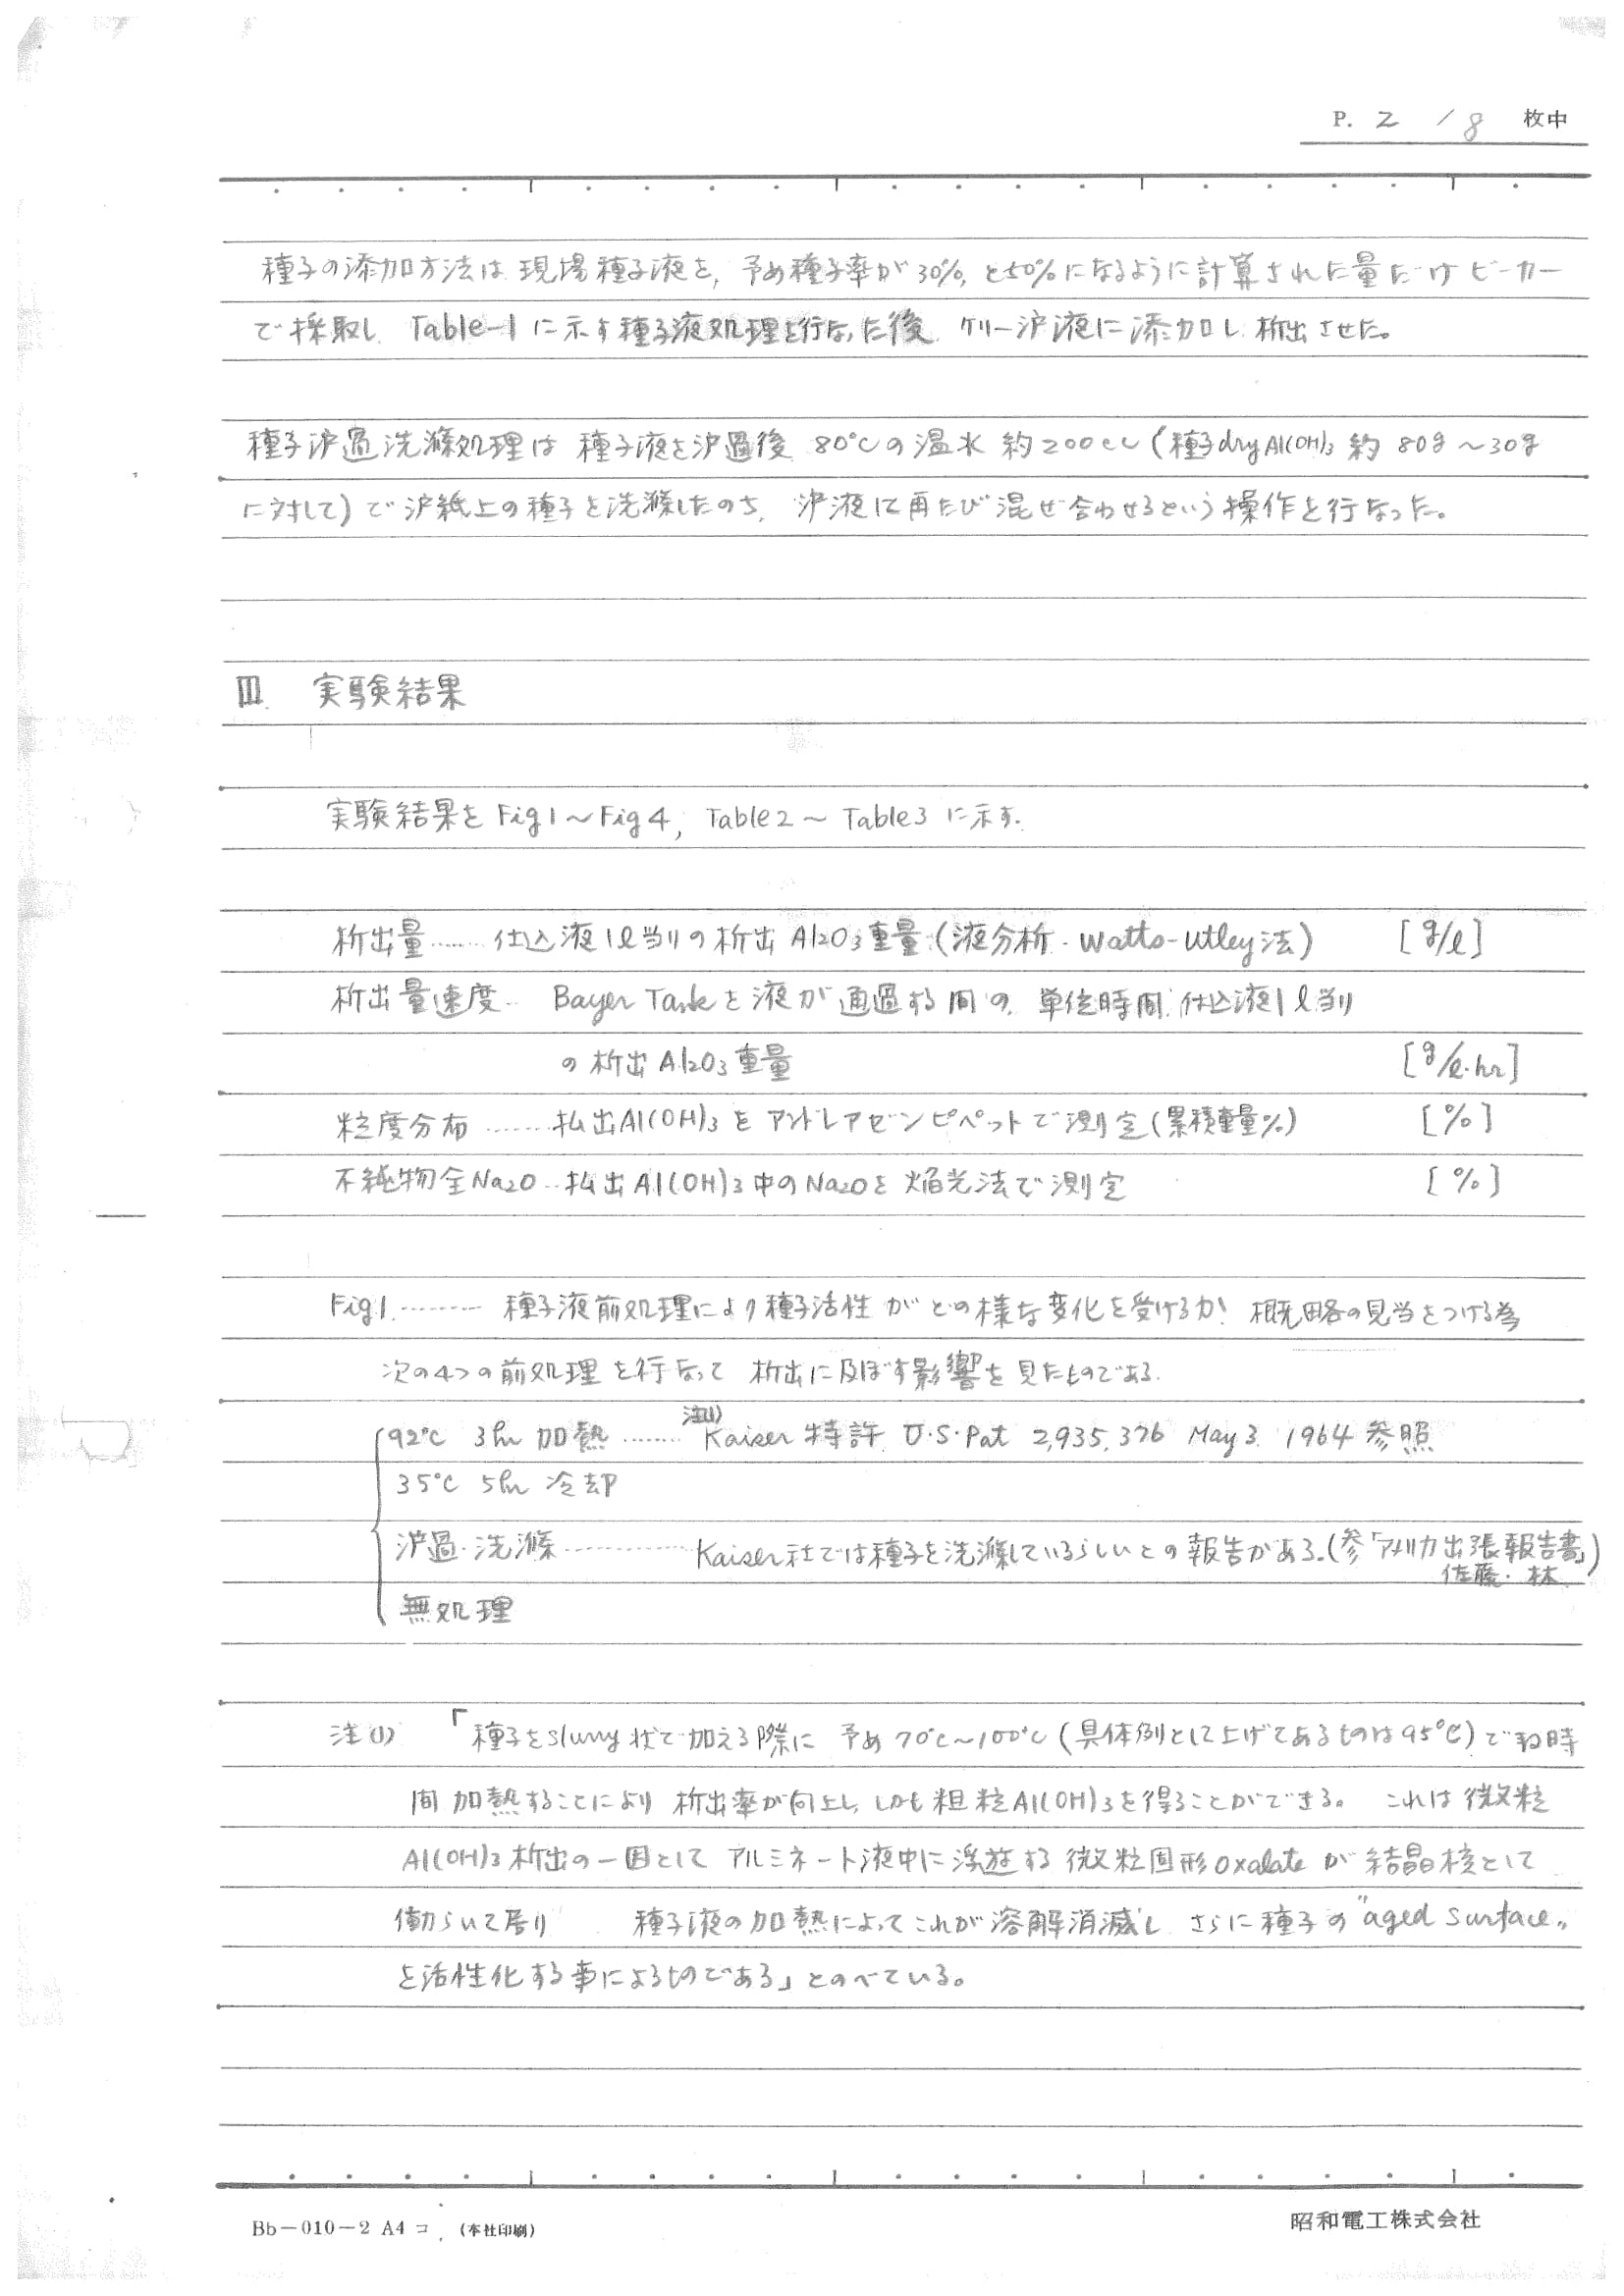 P. 2 / 8 枚中
種子の添加方法は現場種子液を, 予め種子率が30%, と50%になるように計算された量だけビーカー
で採取し Table-1 に示す種子液処理を行なった後 ケリー沪液に添加し析出させた。
種子沪過洗滌処理は 種子液を沪過後 80℃の温水 約200cc (種子dry Al(OH)3 約 80g～30g
に対して) で沪紙上の種子を洗滌したのち, 沪液に再たび混ぜ合わせるという操作を行なった。
Ⅲ. 実験結果
実験結果を Fig 1～Fig 4, Table 2～ Table 3 に示す.
析出量…… 仕込液1ℓ当りの析出 Al2O3重量 (液分析. Watts-Utley法) [g/ℓ]
析出量速度.. Bayer Tankを液が通過する間の, 単位時間, 仕込液1ℓ当り
の析出 Al2O3重量 [g/ℓ.hr]
粒度分布 ……払出Al(OH)3をアンドレアゼンピペットで測定(累積重量%) [%]
不純物全Na2O..払出Al(OH)3中のNa2Oを焔光法で測定 [%]
Fig 1. ……… 種子液前処理により種子活性がどの様な変化を受けるか! 概略の見当をつける為
次の4つの前処理を行なって 析出に及ぼす影響を見たものである.
92℃ 3hr 加熱 …… 注(1) Kaiser 特許 U.S.Pat 2,935,376 May 3. 1964 参照
35℃ 5hr 冷却
沪過.洗滌 ………… Kaiser社では種子を洗滌しているらしいとの報告がある.(参「アメリカ出張報告書」)
佐藤. 林
無処理
注(1) 「種子をslurry状で加える際に 予め70℃～100℃ (具体例として上げてあるものは95℃) で 時
間加熱することにより 析出率が向上し, しかも粗粒Al(OH)3を得ることができる。 これは微粒
Al(OH)3析出の一因として アルミネート液中に浮遊する微粒固形oxalateが結晶核として
働らいて居り 種子液の加熱によってこれが溶解消滅し さらに種子の"aged surface"
を活性化する事によるものである」とのべている。
Bb-010-2 A4 コ (本社印刷)
昭和電工株式会社